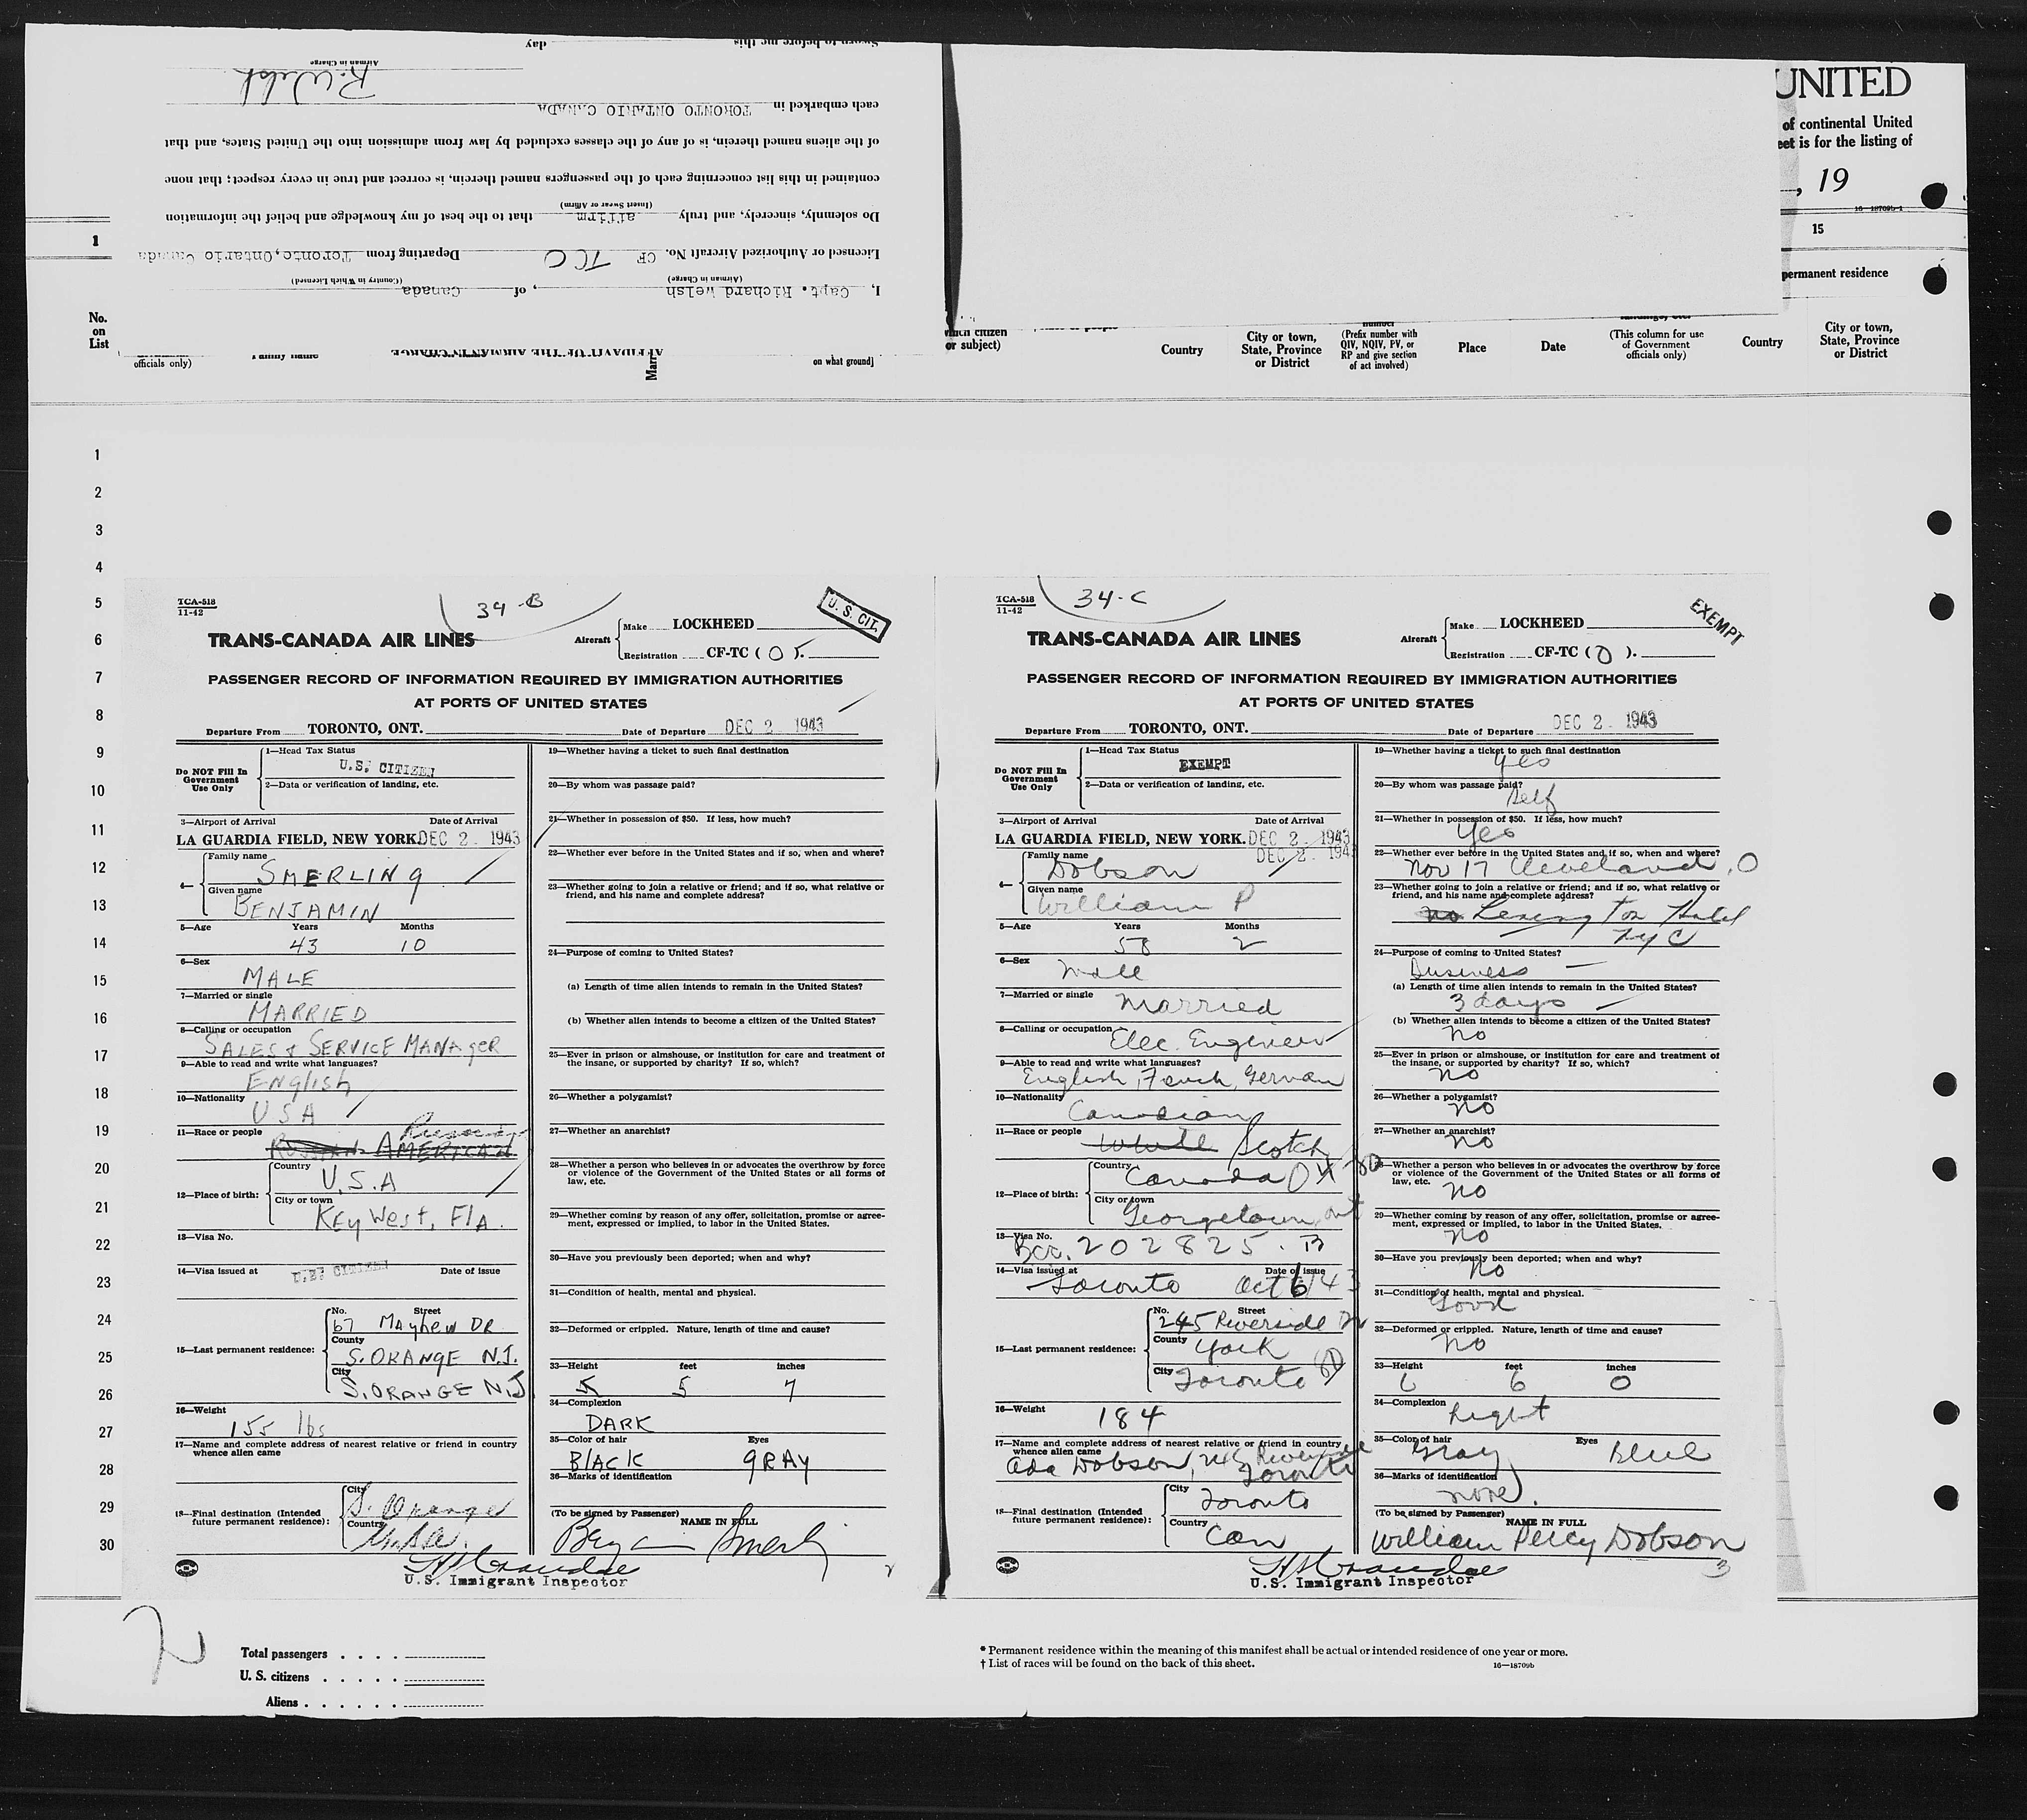 UNITED
of continental United
eet is for the listing of
, 19
16—18709b-1
15
permanent residence
1
No.
on
List
officials only)
Family name
on what ground]
which citizen
or subject)
Country
City or town,
State, Province
or District
number
(Prefix number with
QIV, NQIV, PV, or
RP and give section
of act involved)
Place
Date
(This column for use
of Government
officials only)
Country
City or town,
State, Province
or District
AFFIDAVIT OF THE AIRMAN IN CHARGE
I, Capt. Richard Welsh, of Canada
(Airman in Charge) (Country in Which Licensed)
Licensed or Authorized Aircraft No. CF TCO Departing from Toronto, Ontario Canada
Do solemnly, sincerely, and truly affirm that to the best of my knowledge and belief the information
(Insert Swear or Affirm)
contained in this list concerning each of the passengers named therein, is correct and true in every respect; that none
of the aliens named therein, is of any of the classes excluded by law from admission into the United States, and that
each embarked in TORONTO ONTARIO CANADA
R. Welsh
Airman in Charge
Sworn to before me this day
1
2
3
4
5
6
7
8
9
10
11
12
13
14
15
16
17
18
19
20
21
22
23
24
25
26
27
28
29
30
TCA-518
11-42
34-B
U. S. CIT.
TRANS-CANADA AIR LINES
Aircraft
Make LOCKHEED
Registration CF-TC ( O ).
PASSENGER RECORD OF INFORMATION REQUIRED BY IMMIGRATION AUTHORITIES
AT PORTS OF UNITED STATES
Departure From TORONTO, ONT. Date of Departure DEC 2 1943
Do NOT Fill In
Government
Use Only
1—Head Tax Status
U.S. CITIZEN
2—Data or verification of landing, etc.
3—Airport of Arrival Date of Arrival
LA GUARDIA FIELD, NEW YORK. DEC 2 . 1943
4—
Family name
SMERLING
Given name
BENJAMIN
5—Age Years Months
43 10
6—Sex
MALE
7—Married or single
MARRIED
8—Calling or occupation
SALES & SERVICE MANAgER
9—Able to read and write what languages?
ENglish
10—Nationality
USA
11—Race or people
Russian
RUSSIAN AMERICAN
12—Place of birth:
Country
U.S.A
City or town
KEy West, FlA.
13—Visa No.
14—Visa issued at U.S. CITIZEN Date of issue
15—Last permanent residence:
No. Street
67 MAyhew DR
County
S. ORANgE N.J.
City
S. ORANGE N.J
16—Weight
155 lbs
17—Name and complete address of nearest relative or friend in country
whence alien came
18—Final destination (Intended
future permanent residence):
City
S. Orange
Country
U.S.A.
19—Whether having a ticket to such final destination
20—By whom was passage paid?
21—Whether in possession of $50. If less, how much?
22—Whether ever before in the United States and if so, when and where?
23—Whether going to join a relative or friend; and if so, what relative or
friend, and his name and complete address?
24—Purpose of coming to United States?
(a) Length of time alien intends to remain in the United States?
(b) Whether alien intends to become a citizen of the United States?
25—Ever in prison or almshouse, or institution for care and treatment of
the insane, or supported by charity? If so, which?
26—Whether a polygamist?
27—Whether an anarchist?
28—Whether a person who believes in or advocates the overthrow by force
or violence of the Government of the United States or all forms of
law, etc.
29—Whether coming by reason of any offer, solicitation, promise or agree-
ment, expressed or implied, to labor in the United States.
30—Have you previously been deported; when and why?
31—Condition of health, mental and physical.
32—Deformed or crippled. Nature, length of time and cause?
33—Height feet inches
5 5 7
34—Complexion
DARK
35—Color of hair Eyes
BlACK gRAy
36—Marks of identification
(To be signed by Passenger)
NAME IN FULL
Benjamin Smerling
U.S. Immigrant Inspector
2
TCA-518
11-42
34-C
EXEMPT
TRANS-CANADA AIR LINES
Aircraft
Make LOCKHEED
Registration CF-TC ( O ).
PASSENGER RECORD OF INFORMATION REQUIRED BY IMMIGRATION AUTHORITIES
AT PORTS OF UNITED STATES
Departure From TORONTO, ONT. Date of Departure DEC 2 . 1943
Do NOT Fill In
Government
Use Only
1—Head Tax Status
EXEMPT
2—Data or verification of landing, etc.
3—Airport of Arrival Date of Arrival
LA GUARDIA FIELD, NEW YORK. DEC 2 . 1943
DEC 2 . 194
4—
Family name
Dobson
Given name
William P
5—Age Years Months
58 2
6—Sex
Male
7—Married or single
Married
8—Calling or occupation
Elec. Engineer
9—Able to read and write what languages?
English, French, German
10—Nationality
Canadian
11—Race or people
White Scotch
12—Place of birth:
Country
Canada
City or town
Georgetown, Ont
13—Visa No.
Bcc. 202825. B
14—Visa issued at Date of issue
Toronto Oct 6/43
15—Last permanent residence:
No. Street
245 Riverside Dr
County
York
City
Toronto
16—Weight
184
17—Name and complete address of nearest relative or friend in country
whence alien came
Ada Dobson, 245 Riverside
Toronto
18—Final destination (Intended
future permanent residence):
City
Toronto
Country
Can
19—Whether having a ticket to such final destination
Yes
20—By whom was passage paid?
Self
21—Whether in possession of $50. If less, how much?
Yes
22—Whether ever before in the United States and if so, when and where?
Nov 17 Cleveland, O
23—Whether going to join a relative or friend; and if so, what relative or
friend, and his name and complete address?
no Lexington Hotel
NYC
24—Purpose of coming to United States?
Business
(a) Length of time alien intends to remain in the United States?
3 days
(b) Whether alien intends to become a citizen of the United States?
No
25—Ever in prison or almshouse, or institution for care and treatment of
the insane, or supported by charity? If so, which?
No
26—Whether a polygamist?
No
27—Whether an anarchist?
No
28—Whether a person who believes in or advocates the overthrow by force
or violence of the Government of the United States or all forms of
law, etc.
No
29—Whether coming by reason of any offer, solicitation, promise or agree-
ment, expressed or implied, to labor in the United States.
No
30—Have you previously been deported; when and why?
No
31—Condition of health, mental and physical.
Good
32—Deformed or crippled. Nature, length of time and cause?
No
33—Height feet inches
6 6 0
34—Complexion
Light
35—Color of hair Eyes
Gray Blue
36—Marks of identification
none.
(To be signed by Passenger)
NAME IN FULL
William Percy Dobson
U.S. Immigrant Inspector
3
2
Total passengers
U. S. citizens
Aliens
* Permanent residence within the meaning of this manifest shall be actual or intended residence of one year or more.
† List of races will be found on the back of this sheet.
16—18709b